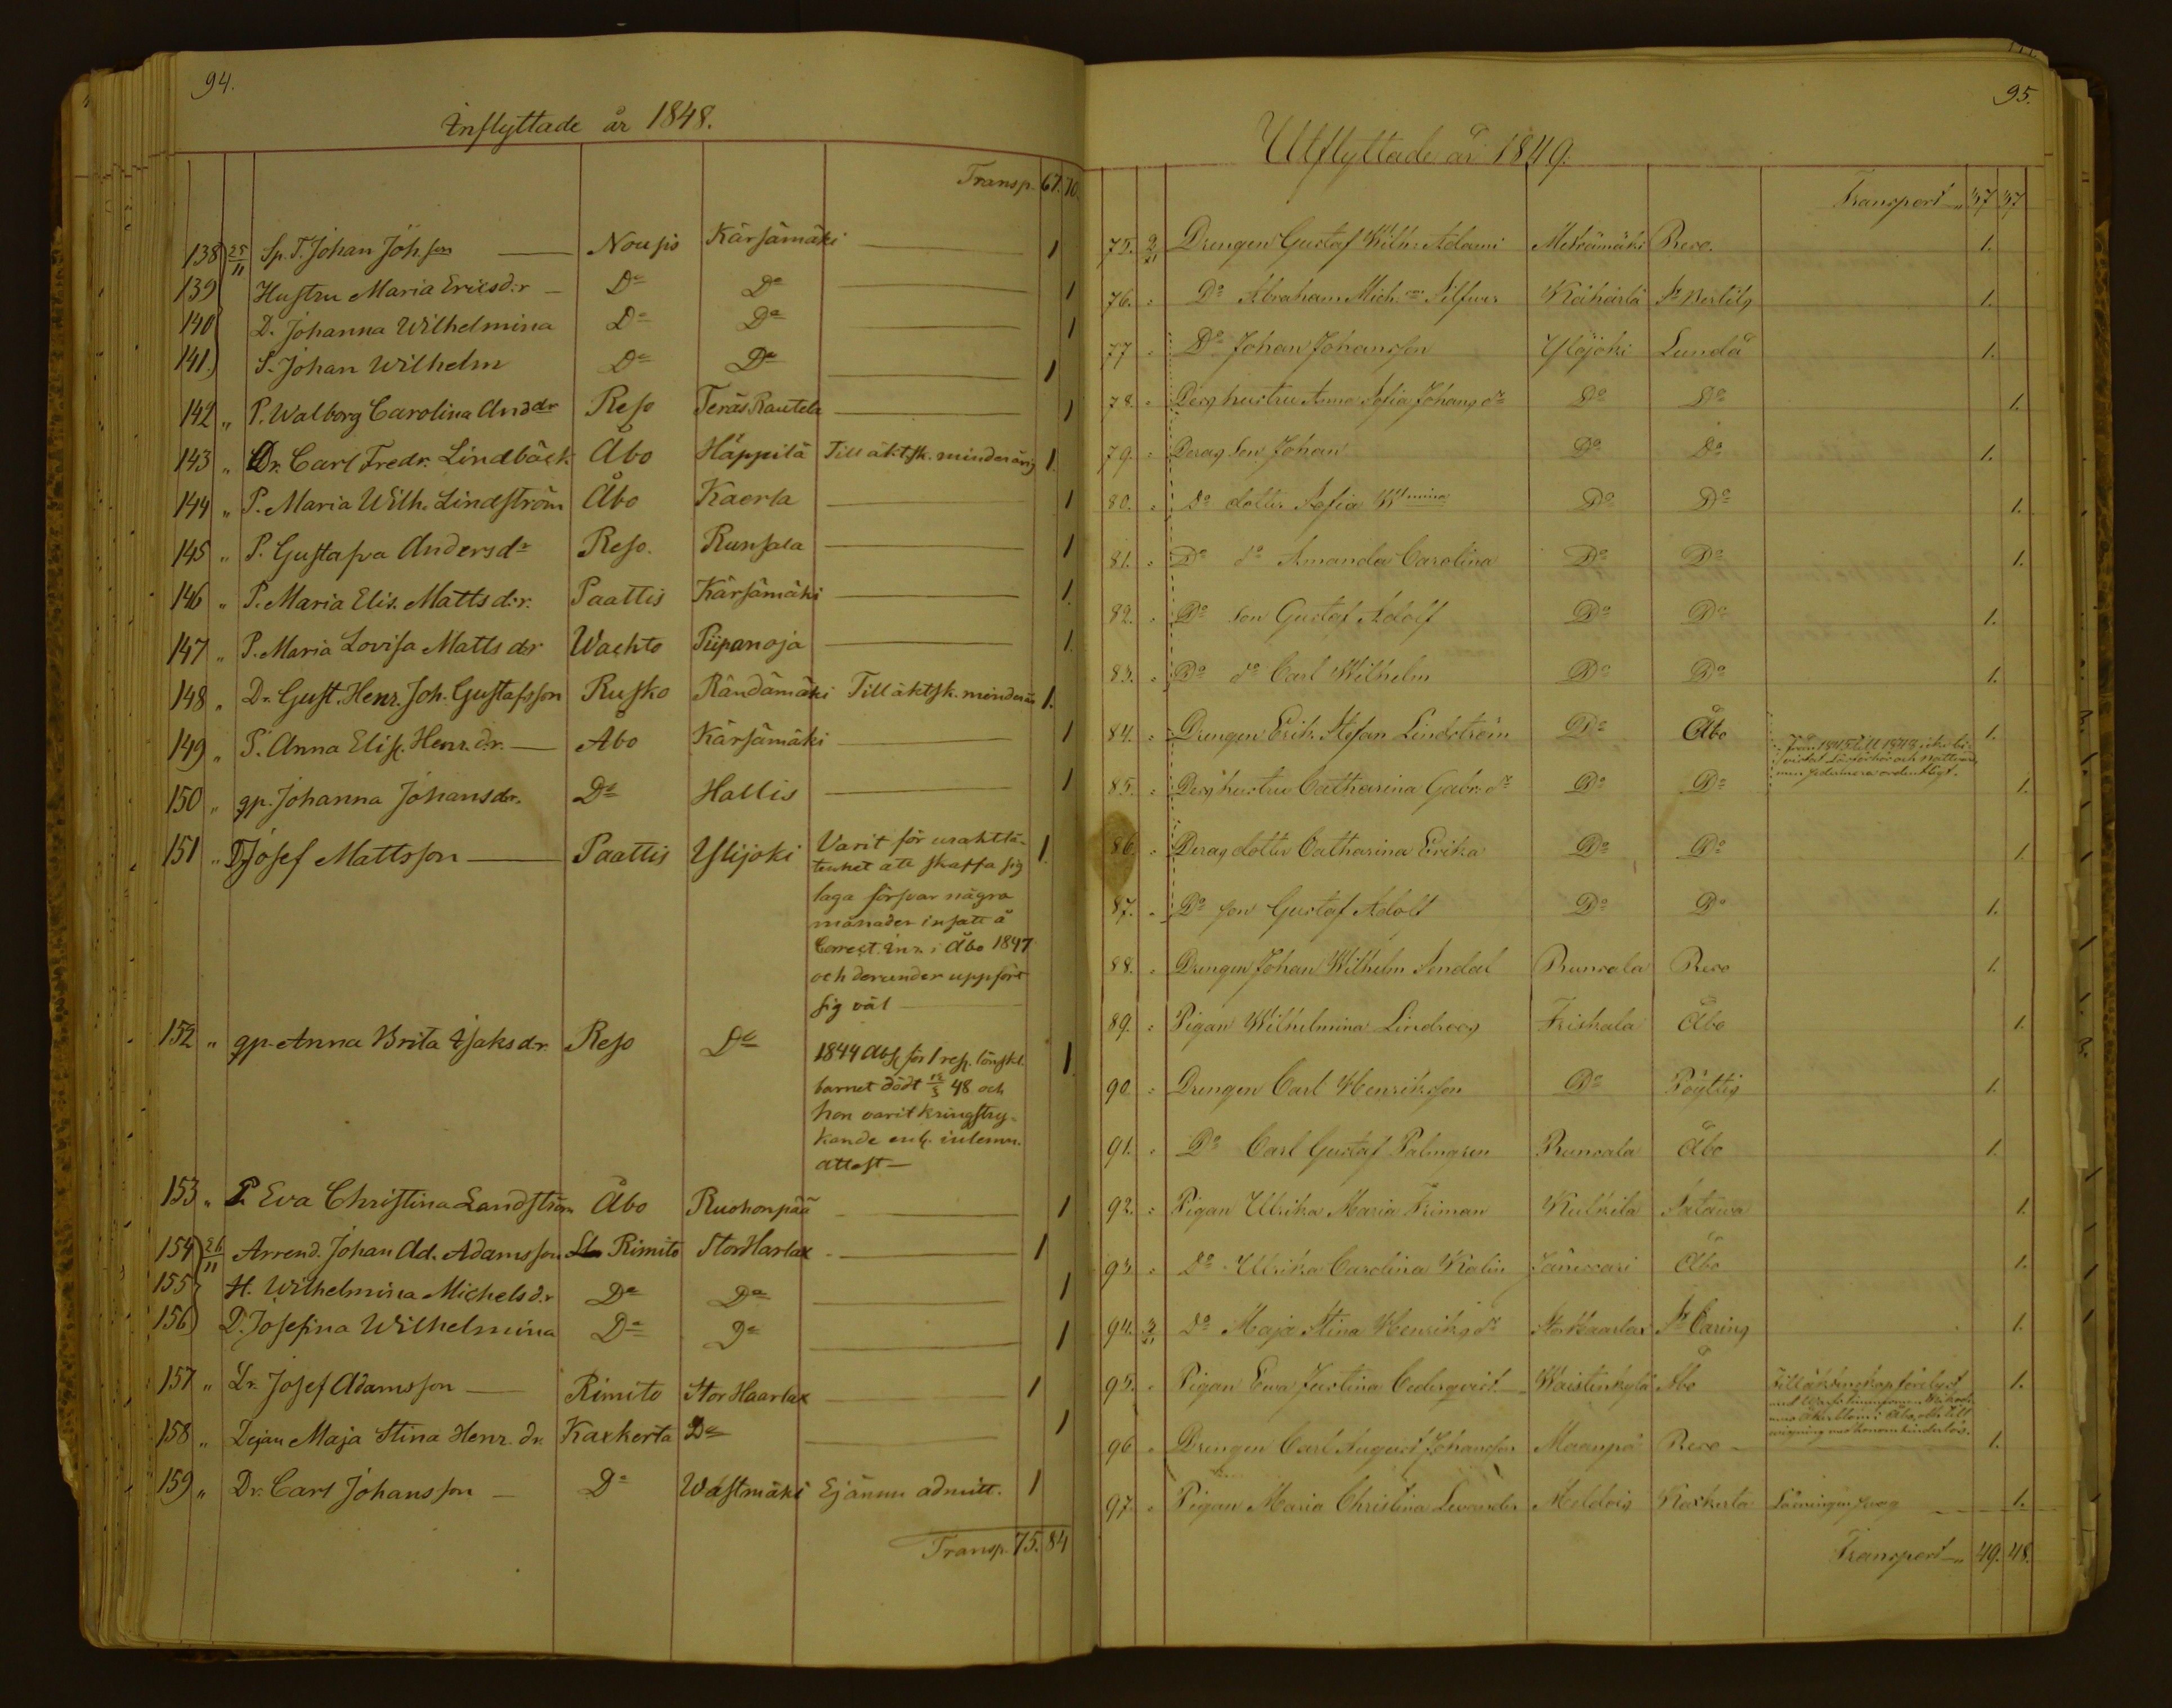 94.
Inflyttade år 1848.
Transp. 67. 70.
138 25/11 Sp. T. Johan Joh.son Nousis Kärsämäki 1
139 Hustru Maria Ericsd:r Do Do 1
140 D. Johanna Wilhelmina Do Do 1
141. S. Johan Wilhelm Do Do 1
142 " P. Walborg Carolina And.dr Reso Teräs Rautela 1
143 " Dr. Carl Fredr. Lindbäck Åbo Häppilä Till äktsk. minderårig 1.
144 " P. Maria Wilh. Lindström Åbo Kaerla 1
145 " P. Gustafva Andersdr Reso. Runsala 1
146 " P. Maria Elis. Matts d:r. Paattis Kärsämäki 1.
147 " P. Maria Lovisa Matts d:r Wachto Piipanoja 1.
148 " Dr. Gust. Henr. Joh. Gustafsson Rusko Rändämäki Till äktsk. minderår 1.
149 " P. Anna Elis. Henr. d:r. Åbo Kärsämäki 1
150 " gp. Johanna Johansdr. Do Hallis 1
151 " Dr Josef Mattsson Paattis Ylijoki Varit för uraktlå- 1.
tenhet att skaffa sig
laga försvar några
månader insatt å
Correct. inr. i Åbo 1847
och derunder uppfört
sig väl
152 " gp. Anna Brita Isaksdr. Reso Do 1844 Abs. för 1 res. lönskl. 1
barnet dödt 12/3 48 och
hon varit kringstry-
kande enl. inlemn.
attest
153 " P. Eva Christina Landström Åbo Ruohonpää 1
154 26/11 Arrend. Johan Ad. Adamsson Rimito StorHarlax 1
155 H. Wilhelmina Michelsd:r Do Do 1
156 D. Josefina Wilhelmina Do Do 1
157 " Dr. Josef Adamsson Rimito Stor Haarlax 1
158 " Lejan Maja Stina Henr. dr. Kaxkerta Do 1
159 " Dr. Carl Johansson Do Wästmäki Ej ännu admitt. 1
Transp. 75. 84
95.
Utflyttade år 1849.
Transport " 37 37
75. Drengen Gustaf Wilh. Adami Metsämäki Reso. 1.
76. " Do Abraham Mich.son Silfver Kähärlä St Bertils 1.
77 " Do Johan Johansson Ylöjoki Lundå 1.
78. " Dess hustru Anna Sofia Johansdr Do Do 1.
79. " Deras Son Johan Do Do 1.
80. " Do dotter Sofia Wmina Do Do 1.
81. " Do do Amanda Carolina Do Do 1.
82. " Do Son Gustaf Adolf Do Do 1.
83. " Do do Carl Wilhelm Do Do 1.
84. " Drengen Erik Stefan Lindström Do Åbo 1.
Från 1845 till 1848 icke bi-
vistat Läsförhör och nattvard,
men sedermera ordentligt.
85. " Dess hustru Catharina Gabr.dr Do Do 1.
86. " Deras dotter Catharina Erika Do Do 1.
87. " Do son Gustaf Adolf Do Do 1.
88. " Drengen Johan Wilhelm Sendal Runsala Reso 1.
89. " Pigan Wilhelmina Lindroos Friskala Åbo 1.
90 " Drengen Carl Henriksson Do Pöyttis 1.
91. " Do Carl Gustaf Palmgren Runsala Åbo 1.
92. " Pigan Ulrika Maria Friman Kulkila Satava 1.
93. " Do Ulrika Carolina Kalin Jänesaari Åbo 1.
94. Do Maja Stina Henriksdr Stor Haarlax St Carins 1.
95. " Pigan Eva Justina Cederqvist Waistenkylä Åbo 1.
Till äktenskap förelyst
96 " Drengen Carl August Johansson Maanpä Reso 1.
97. " Pigan Maria Christina Levander Meldois Kaxkerta Läsningen svag 1.
Transport " 49. 48.